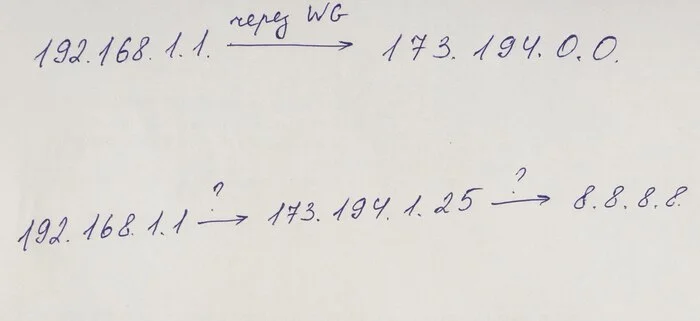 через WG
192.168.1.1. → 173.194.0.0.
? ?
192.168.1.1 → 173.194.1.25 → 8.8.8.8.